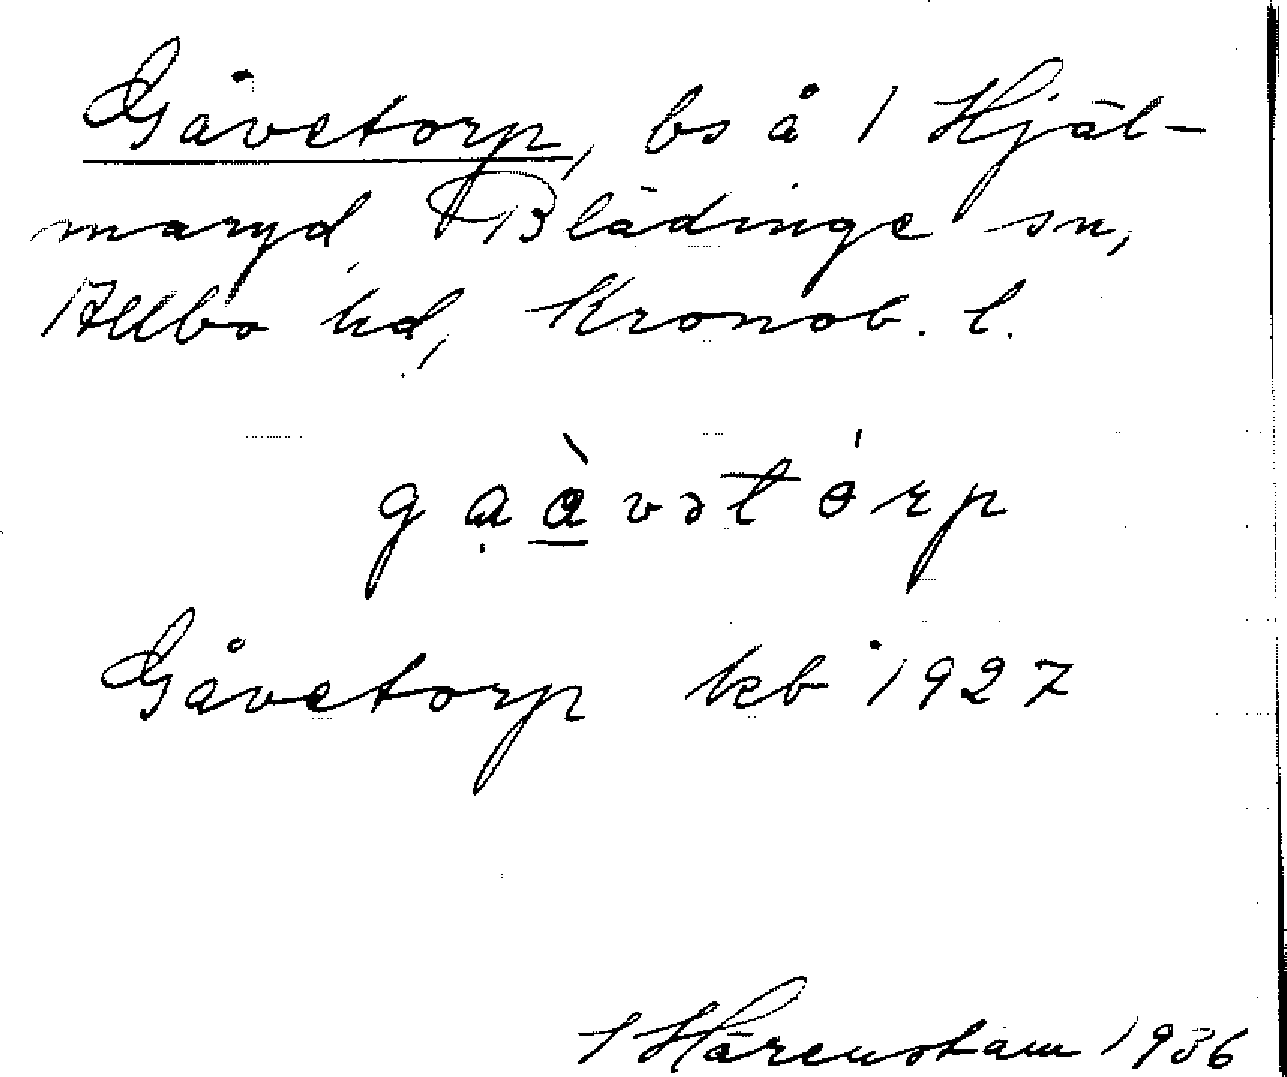 Gåvetorp, bs å 1 Hjäl-
maryd, Blädinge sn,
Allbo hd, Kronob. l.
gạà̲vətɵ́rp
Gåvetorp kb 1927
I Härenstam 1936